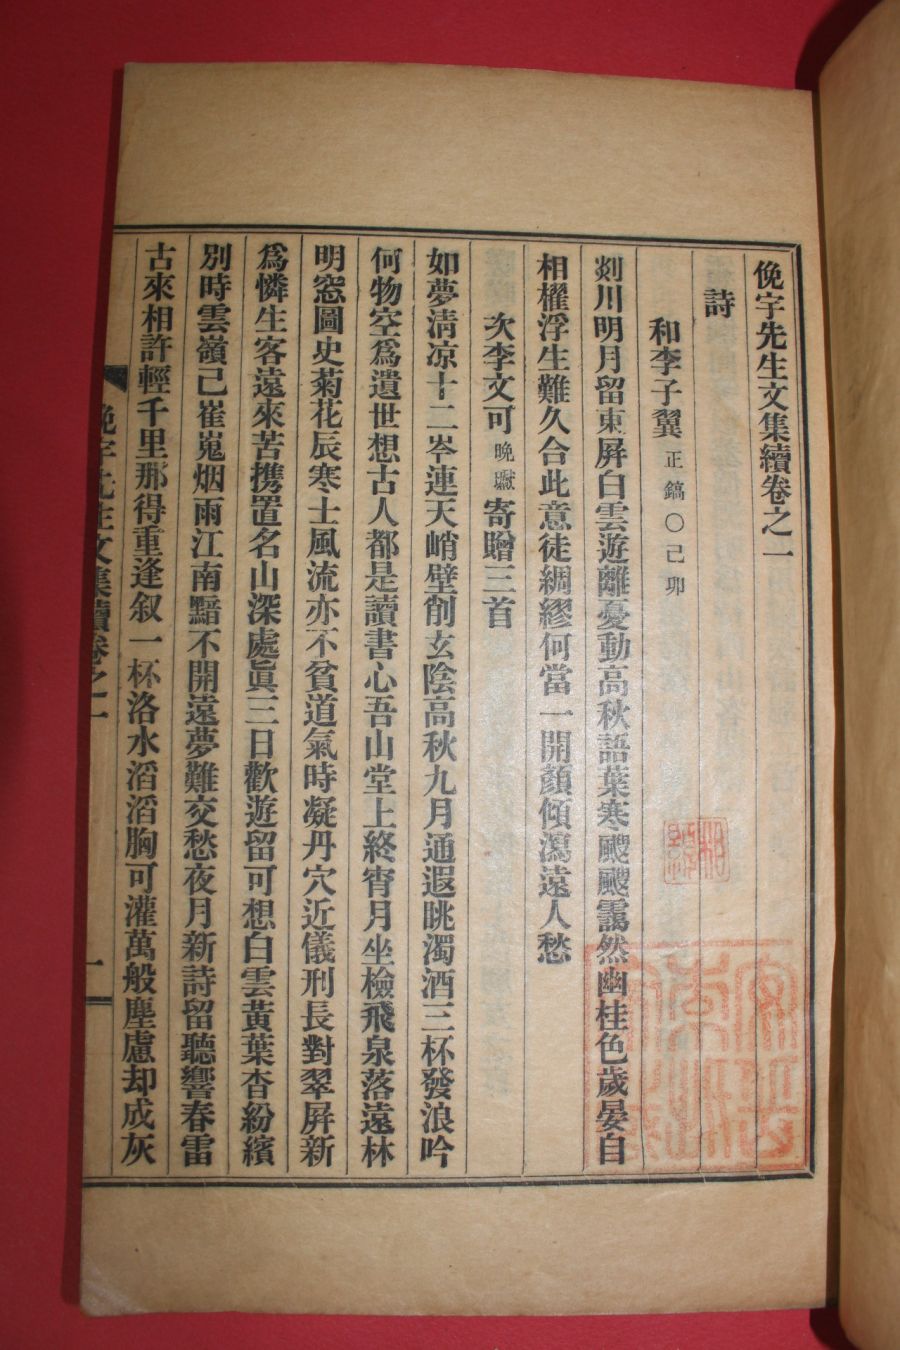 俛宇先生文集續卷之一
詩
和李子翼正鎬○己卯
剡川明月留東屛白雲遊離憂動高秋語葉寒颼颼靄然幽桂色歲晏自
相櫂浮生難久合此意徒綢繆何當一開顏傾瀉遠人愁
次李文可晩獻寄贈三首
如夢淸凉十二岑連天峭壁削玄陰高秋九月通遐眺濁酒三杯發浪吟
何物空爲遺世想古人都是讀書心吾山堂上終宵月坐檢飛泉落遠林
明窓圖史菊花辰寒士風流亦不貧道氣時凝丹穴近儀刑長對翠屛新
爲憐生客遠來苦携置名山深處眞三日歡遊留可想白雲黃葉杳紛繽
別時雲嶺已崔嵬烟雨江南黯不開遠夢難交愁夜月新詩留聽響春雷
古來相許輕千里那得重逢叙一杯洛水滔滔胸可灌萬般塵慮却成灰
俛宇先生文集續卷之一
一